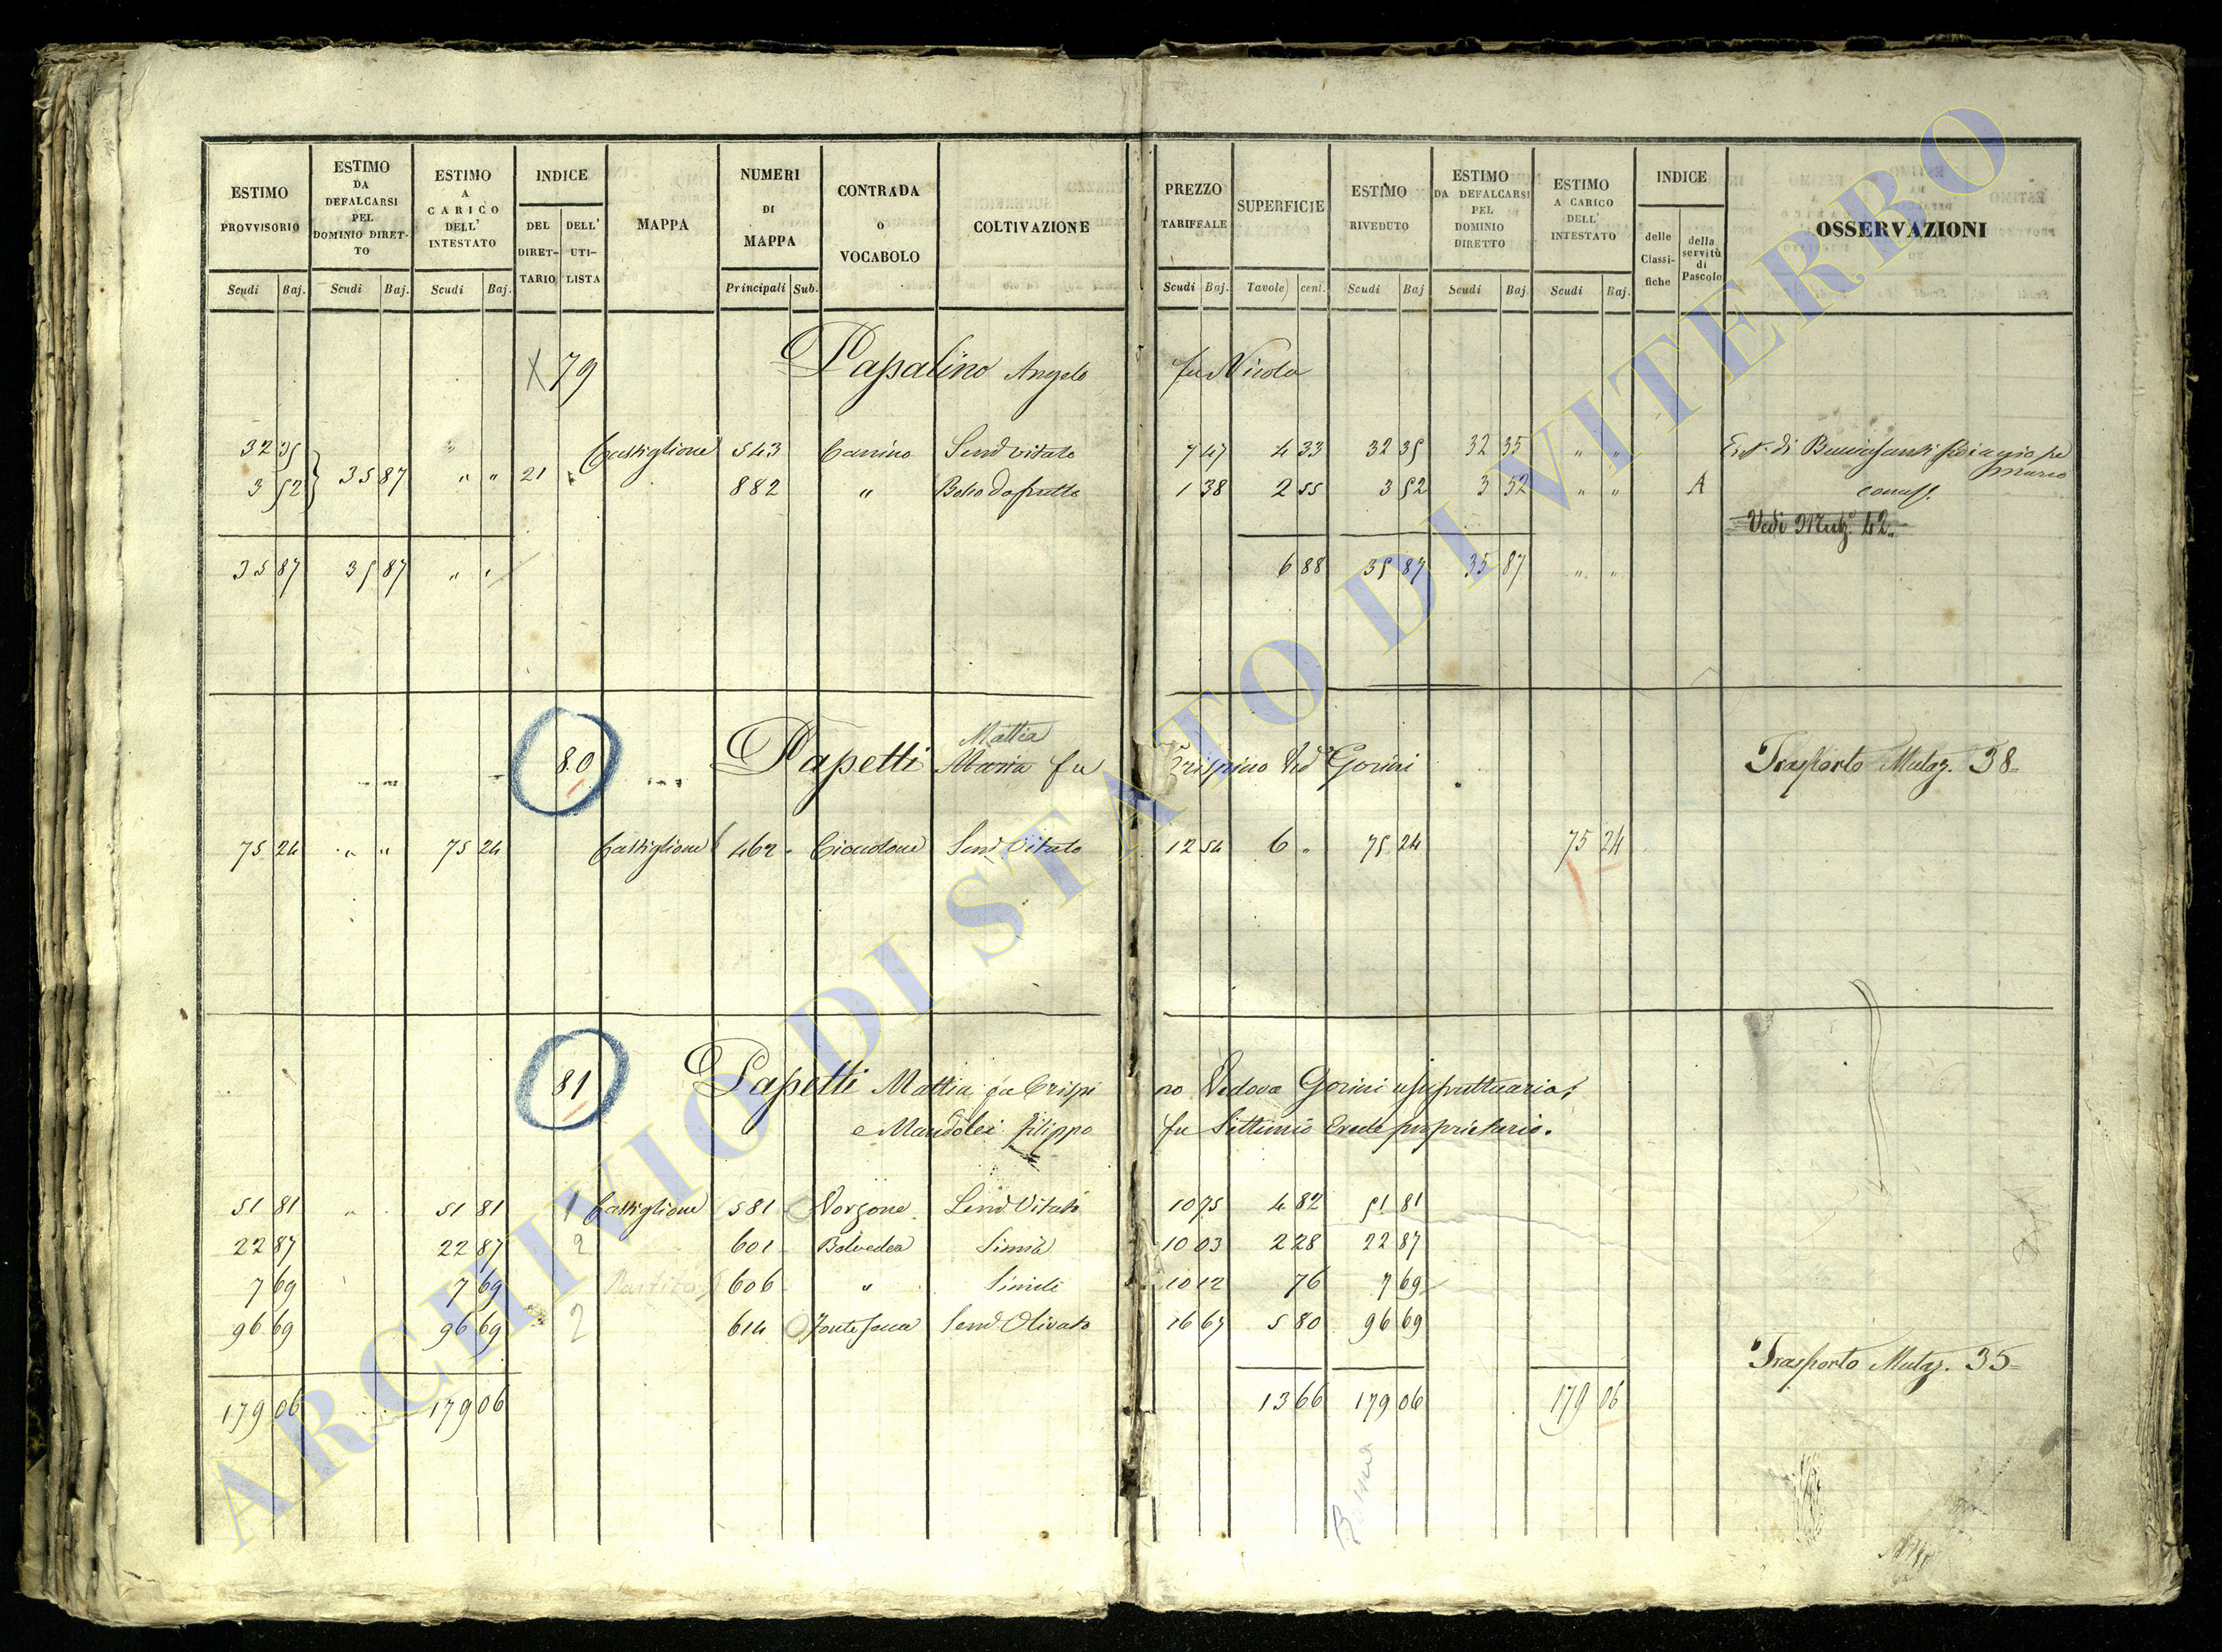 ESTIMO PROVVISORIO
Scudi Baj.
ESTIMO DA DEFALCARSI PEL DOMINIO DIRET-TO
Scudi Baj.
ESTIMO A CARICO DELL' INTESTATO
Scudi Baj.
INDICE
DEL DIRET-TARIO
DELL' UTI-LISTA
MAPPA
NUMERI DI MAPPA
Principali Sub.
CONTRADA o VOCABOLO
COLTIVAZIONE
PREZZO TARIFFALE
Scudi Baj.
SUPERFICIE
Tavole cent.
ESTIMO RIVEDUTO
Scudi Baj
ESTIMO DA DEFALCARSI PEL DOMINIO DIRETTO
Scudi Baj
ESTIMO A CARICO DELL' INTESTATO
Scudi Baj.
INDICE
delle Classi-fiche
della servitù di Pascolo
OSSERVAZIONI
X 79 Papalino Angelo fu Nicola
32 35 " Castiglione 543 Canino Sem.o vitato 7 47 4 33 32 35 32 35 " "
3 52 35 87 " " 21 882 " Bosco da frutto 1 38 2 55 3 52 3 52 " " A
Vedi Mutaz. 42.
35 87 35 87 " " 6 88 35 87 35 87 " "
80 Papetti Maria fu Crispino Ved.a Gorini Trasporto Mutaz. 38
Mattia
75 24 " " 75 24 Castiglione 462 Sem.o Vitato 12 54 6 " 75 24 75 24
81 Papetti Mattia fu Crispi no Vedova Gorini usufruttuaria,
e Mandolei Filippo fu Settimio Erede proprietario.
51 81 " 51 81 1 Castiglione 581 Vorgone Sem.o Vitato 10 75 4 82 51 81
22 87 22 87 2 601 Belvedere Simile 10 03 2 28 22 87
7 69 7 69 Partito 606 " Simile 10 12 76 7 69
96 69 96 69 2 614 Sem.o Olivato 16 67 5 80 96 69
Trasporto Mutaz. 35
179 06 179 06 13 66 179 06 179 06
ARCHIVIO DI STATO DI VITERBO